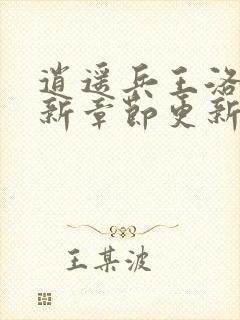 逍遥兵王洛
新章节更新
王某波